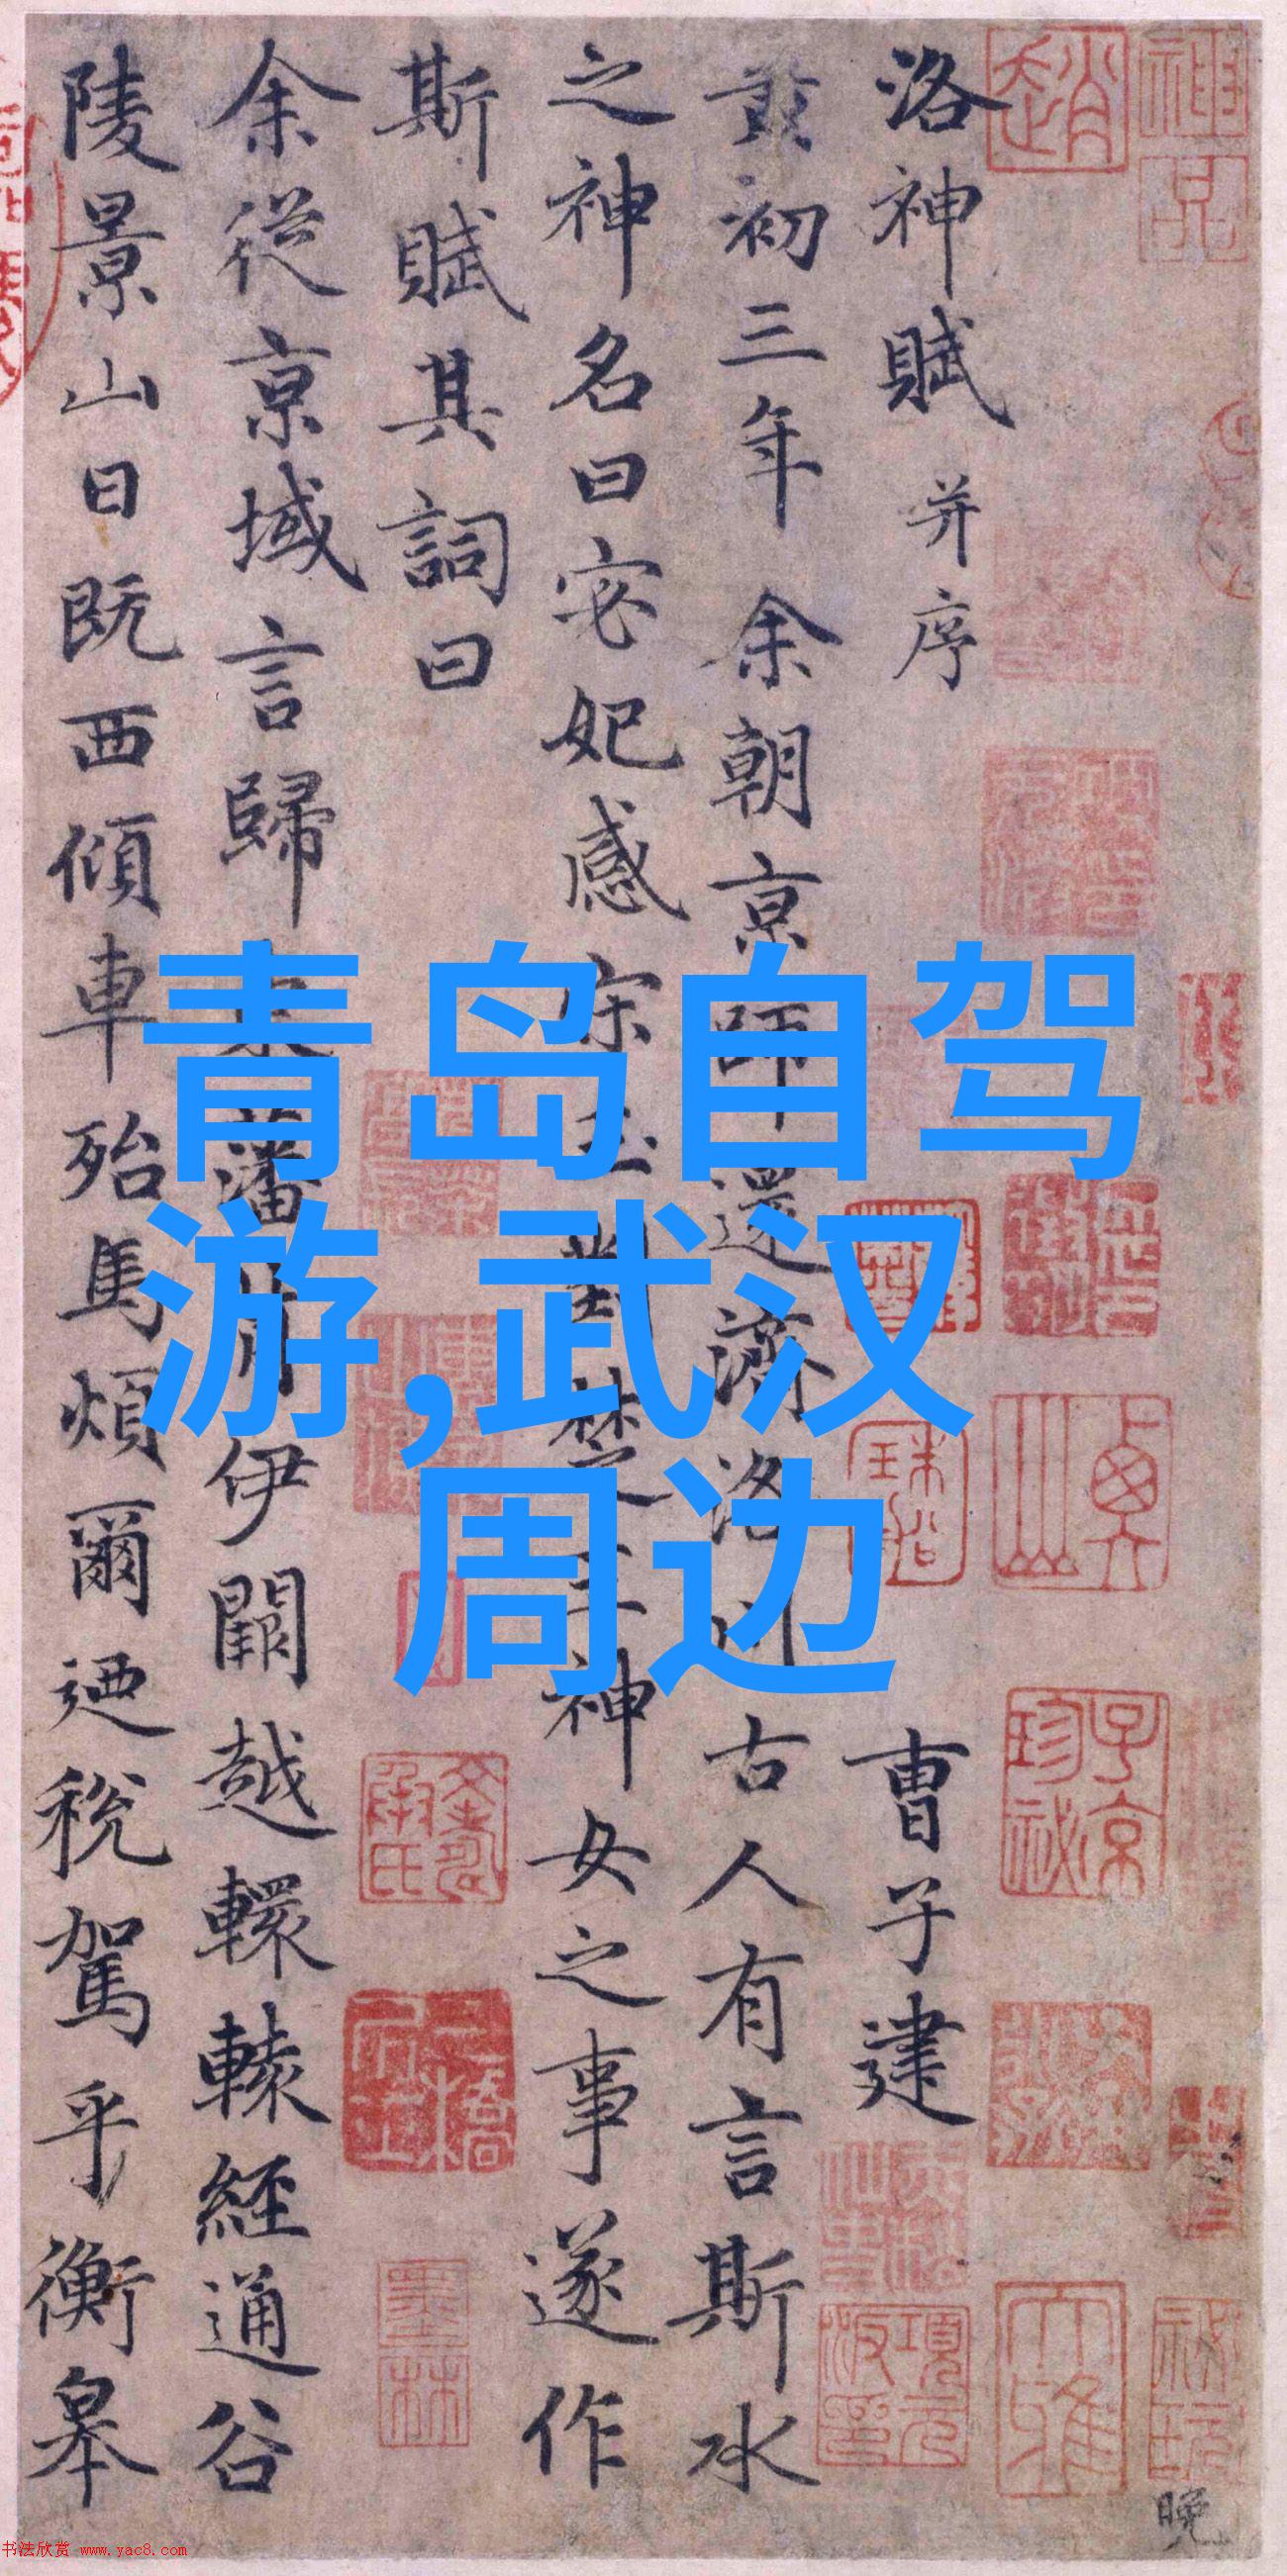 洛神賦 并序 曹子建
黄初三年余朝京師還濟洛川古人有言斯水
之神名曰宓妃感宋玉對楚王神女之事遂作
斯賦其詞曰
余從京域言歸東藩背伊闕越轘轅經通谷
陵景山日既西傾車殆馬煩爾迺稅駕乎衡皋
青岛自驾
游,武汉
周边
趙
子京
珍秘
項元
墨林
晚
书法欣赏 www.yac8.com